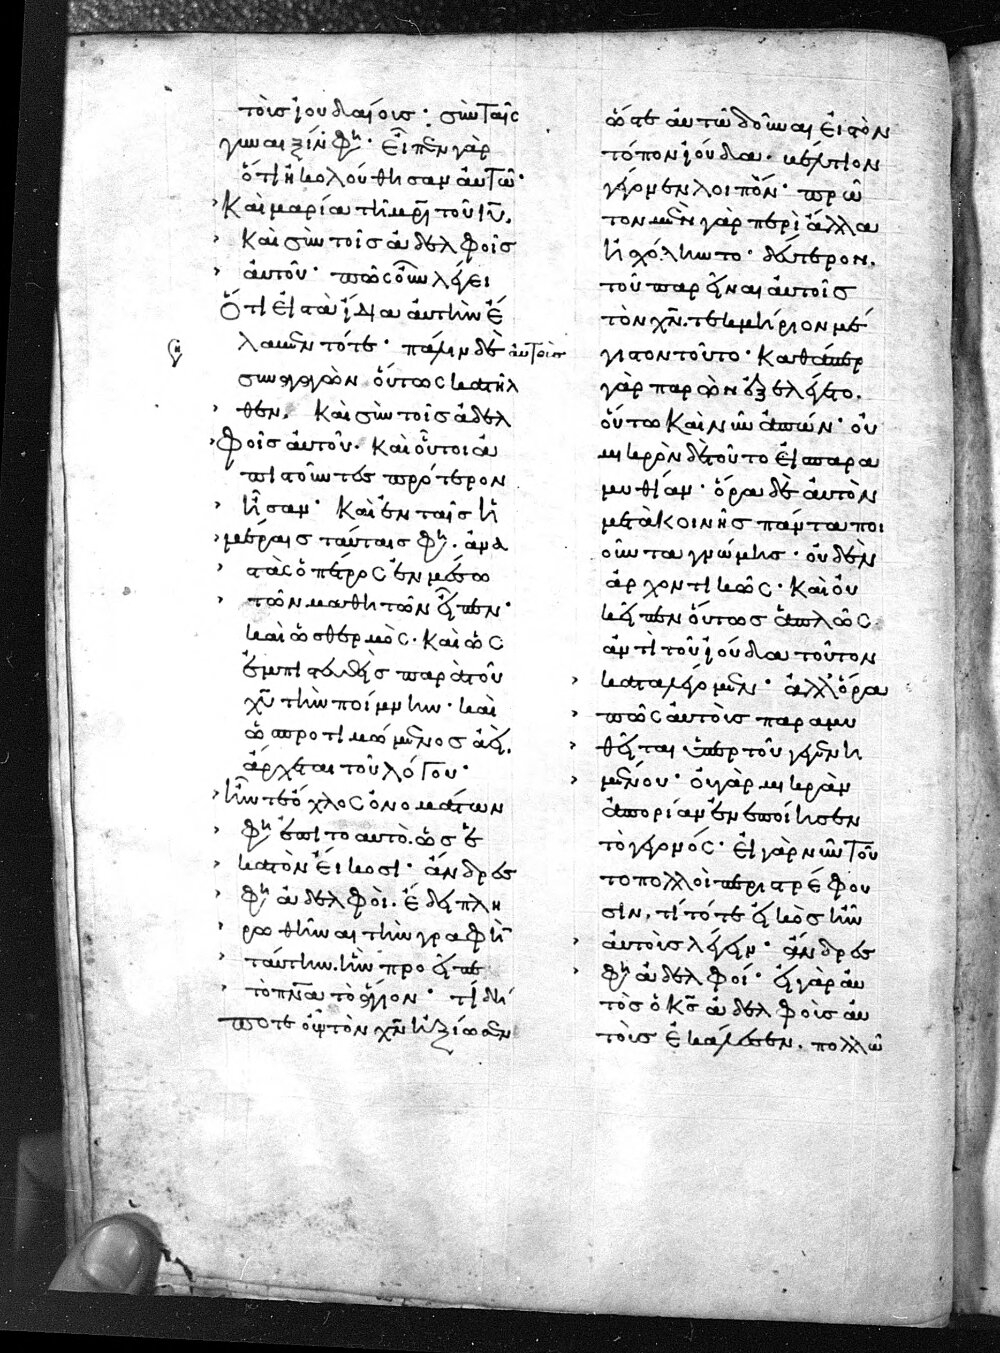 τοῖς ἰουδαίοις· σὺν ταῖς
γυναιξίν φη· εἶπεν γὰρ
ὅτι ἠκολούθησαν αὐτῶ·
Καὶ μαρία τῆ μρὶ τοῦ ιυ.
Καὶ σὺν τοῖς ἀδελφοῖς
αὐτοῦ· πῶς οὖν λέγει
ὅτι εἰς τὰ ἴδια αὐτὴν ἔ
λαβεν τότε· πάλιν δὲ αὐτοῖς
συναγαγὼν οὕτως κατῆλ
θεν. Καὶ σὺν τοῖς ἀδελ
φοῖς αὐτοῦ· Καὶ οὗτοι ἀ
πιστοῦντες πρότερον
ἦσαν· Καὶ ἐν ταῖς ἡ
μέραις ταύταις φη· ἀνα
στὰς ὁ πέτρος ἐν μέσω
τῶν μαθητῶν εἶπεν·
καὶ ὡς θερμὸς· Καὶ ὡς
ἐμπιστευθεὶς παρὰ τοῦ
χυ τὴν ποίμνην· καὶ
ὡς προτιμώμενος ἀεὶ.
ἄρχεται τοῦ λόγου·
ἦν τε ὄχλος ὀνομάτων
φη ἐπὶ το αυτὸ. ὡς ἑ
κατὸν εἴκοσι· ἄνδρες
φη ἀδελφοὶ. ἔδει πλη
ρωθῆναι τὴν γραφὴ
ταύτην. ἣν προεῖπε
τὸ πνα τὸ ἅγιον· τί δή
ποτε οὐ τὸν χν ἠξίωσεν
ὥστε αὐτῶ δοῦναι εἰς τὸν
τόπον ἰούδα· κέλτιον
γέγομεν λοιπὸν· πρῶ
τον μὲν γὰρ περὶ ἄλλα
ἠσχόληντο· δεύτερον.
τοῦ παρεῖναι αὐτοῖς
τὸν χν. τεκμήριον μέ
γιστον τοῦτο· Καθάπερ
γὰρ παρὼν ἐξελέγετο.
οὕτω Καὶ νῦν ἀπών· οὐ
μικρὸν δὲ τοῦτο εἰς παρα
μυθίαν· ὅρα δὲ αὐτὸν
μετὰ κοινῆς πάντα ποι
οῦντα γνώμης· οὐδὲν
ἀρχοντικῶς· Καὶ οὐ
κ εἶπεν οὕτως ἁπλῶς
ἀντὶ τοῦ ἰούδα τοῦτον
καταλέγομεν· ἀλλ' ὅρα
πῶς αὐτοὺς παραμυ
θεῖται ὑπὲρ τοῦ γεγενη
μένου· οὐ γὰρ μικρὰν
ἀπορίαν ἐνεποίησεν
τὸ γεγονός· εἰ γὰρ νῦν τοῦ
το πολλοὶ περιστρέφου
σιν. τί τότε εἰκὸς ἦν
αὐτοὺς λέγειν· ἄνδρες
φη ἀδελφοί· εἰ γὰρ αὐ
τὸς ὁ κς ἀδελφοὺς αὐ
τοὺς ἐκάλεσεν. πολλῶ